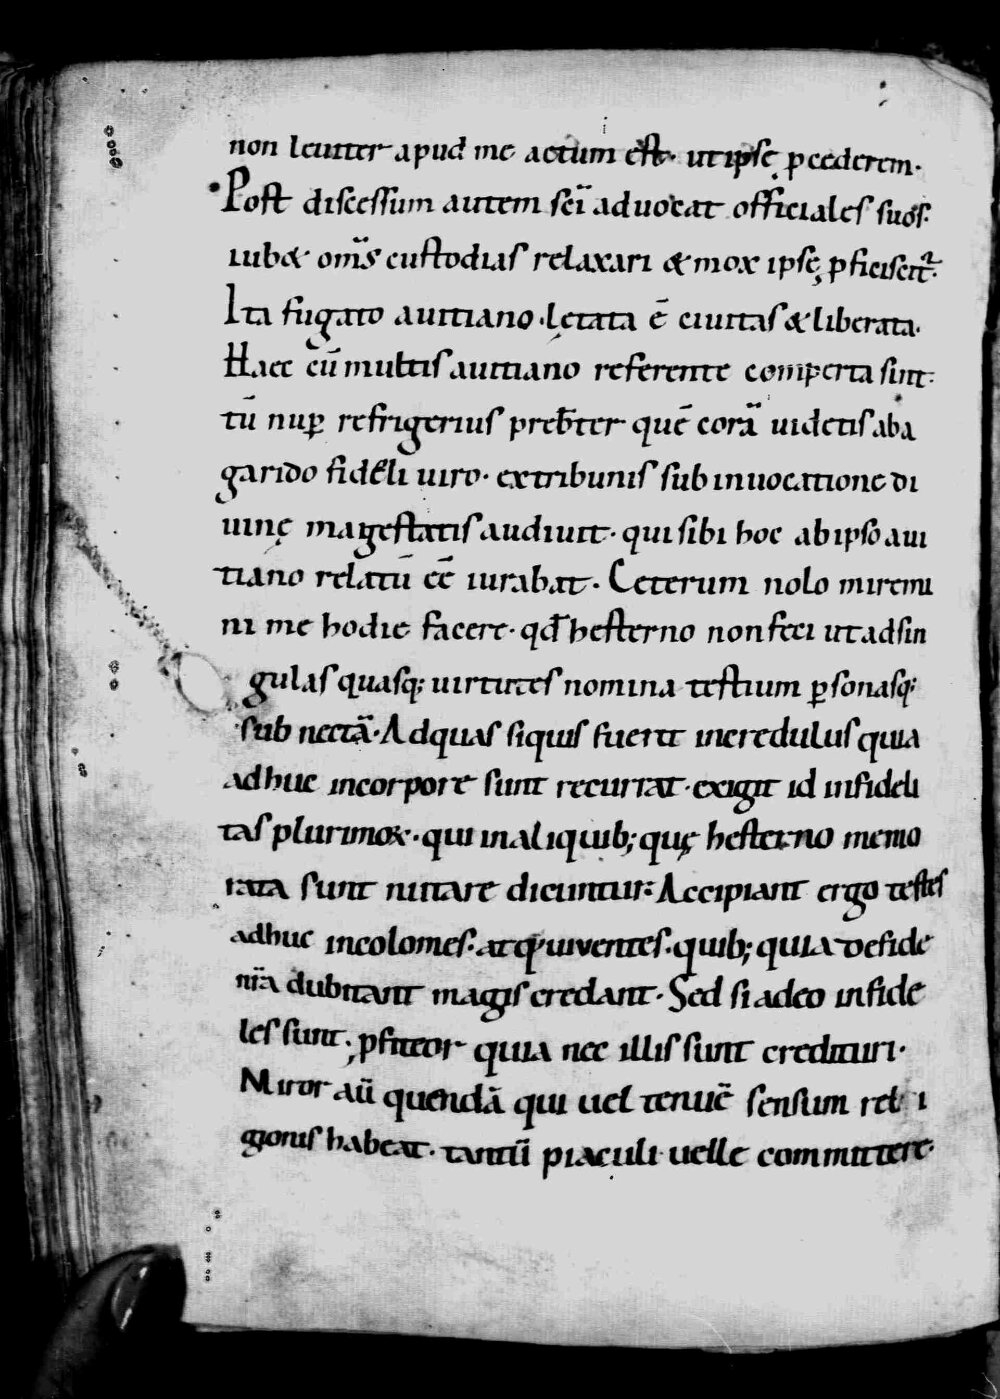 non leuiter apud me actum est· ut ipsę p̱cederem·
Post discessum autem scī aduocat officiales suos·
iub& om̄s custodias relaxari & mox ipsę p̱ficiscit᷑·
Ita fugato auitiano·lętata ē ciuitas & liberata·
Haec cū multis auitiano referente comperta sint·
tū nuꝑ refrigerius prēbter quē corā uidetis aba
garido fideli uiro· ex tribunis sub inuocatione di
uinę magestatis audiuit· qui sibi hoc ab ipso aui
tiano relatū eē iurabat· Ceterum nolo miremi
ni me hodie facere· qđ hesterno non feci ut ad sin
gulas quasq; uirtutes nomina testium ꝑsonasq;
sub nectā· Ad quas siquis fuerit incredulus quia
adhuc in corpore sunt recurrat· exigit id infideli
tas plurimoꝝ· qui in aliquib; quę hesterno memo
rata sunt nutare dicuntur· Accipiant ergo testes
adhuc incolomes· atq; uiuentes· quib; quia de fide
nr̄a dubitant magis credant· Sed si adeo infide
les sunt; ꝓfiteor quia nec illis sunt credituri·
Miror aū quendā qui uel tenuē sensum reli
gionis habeat· tantū piaculi uelle committere·